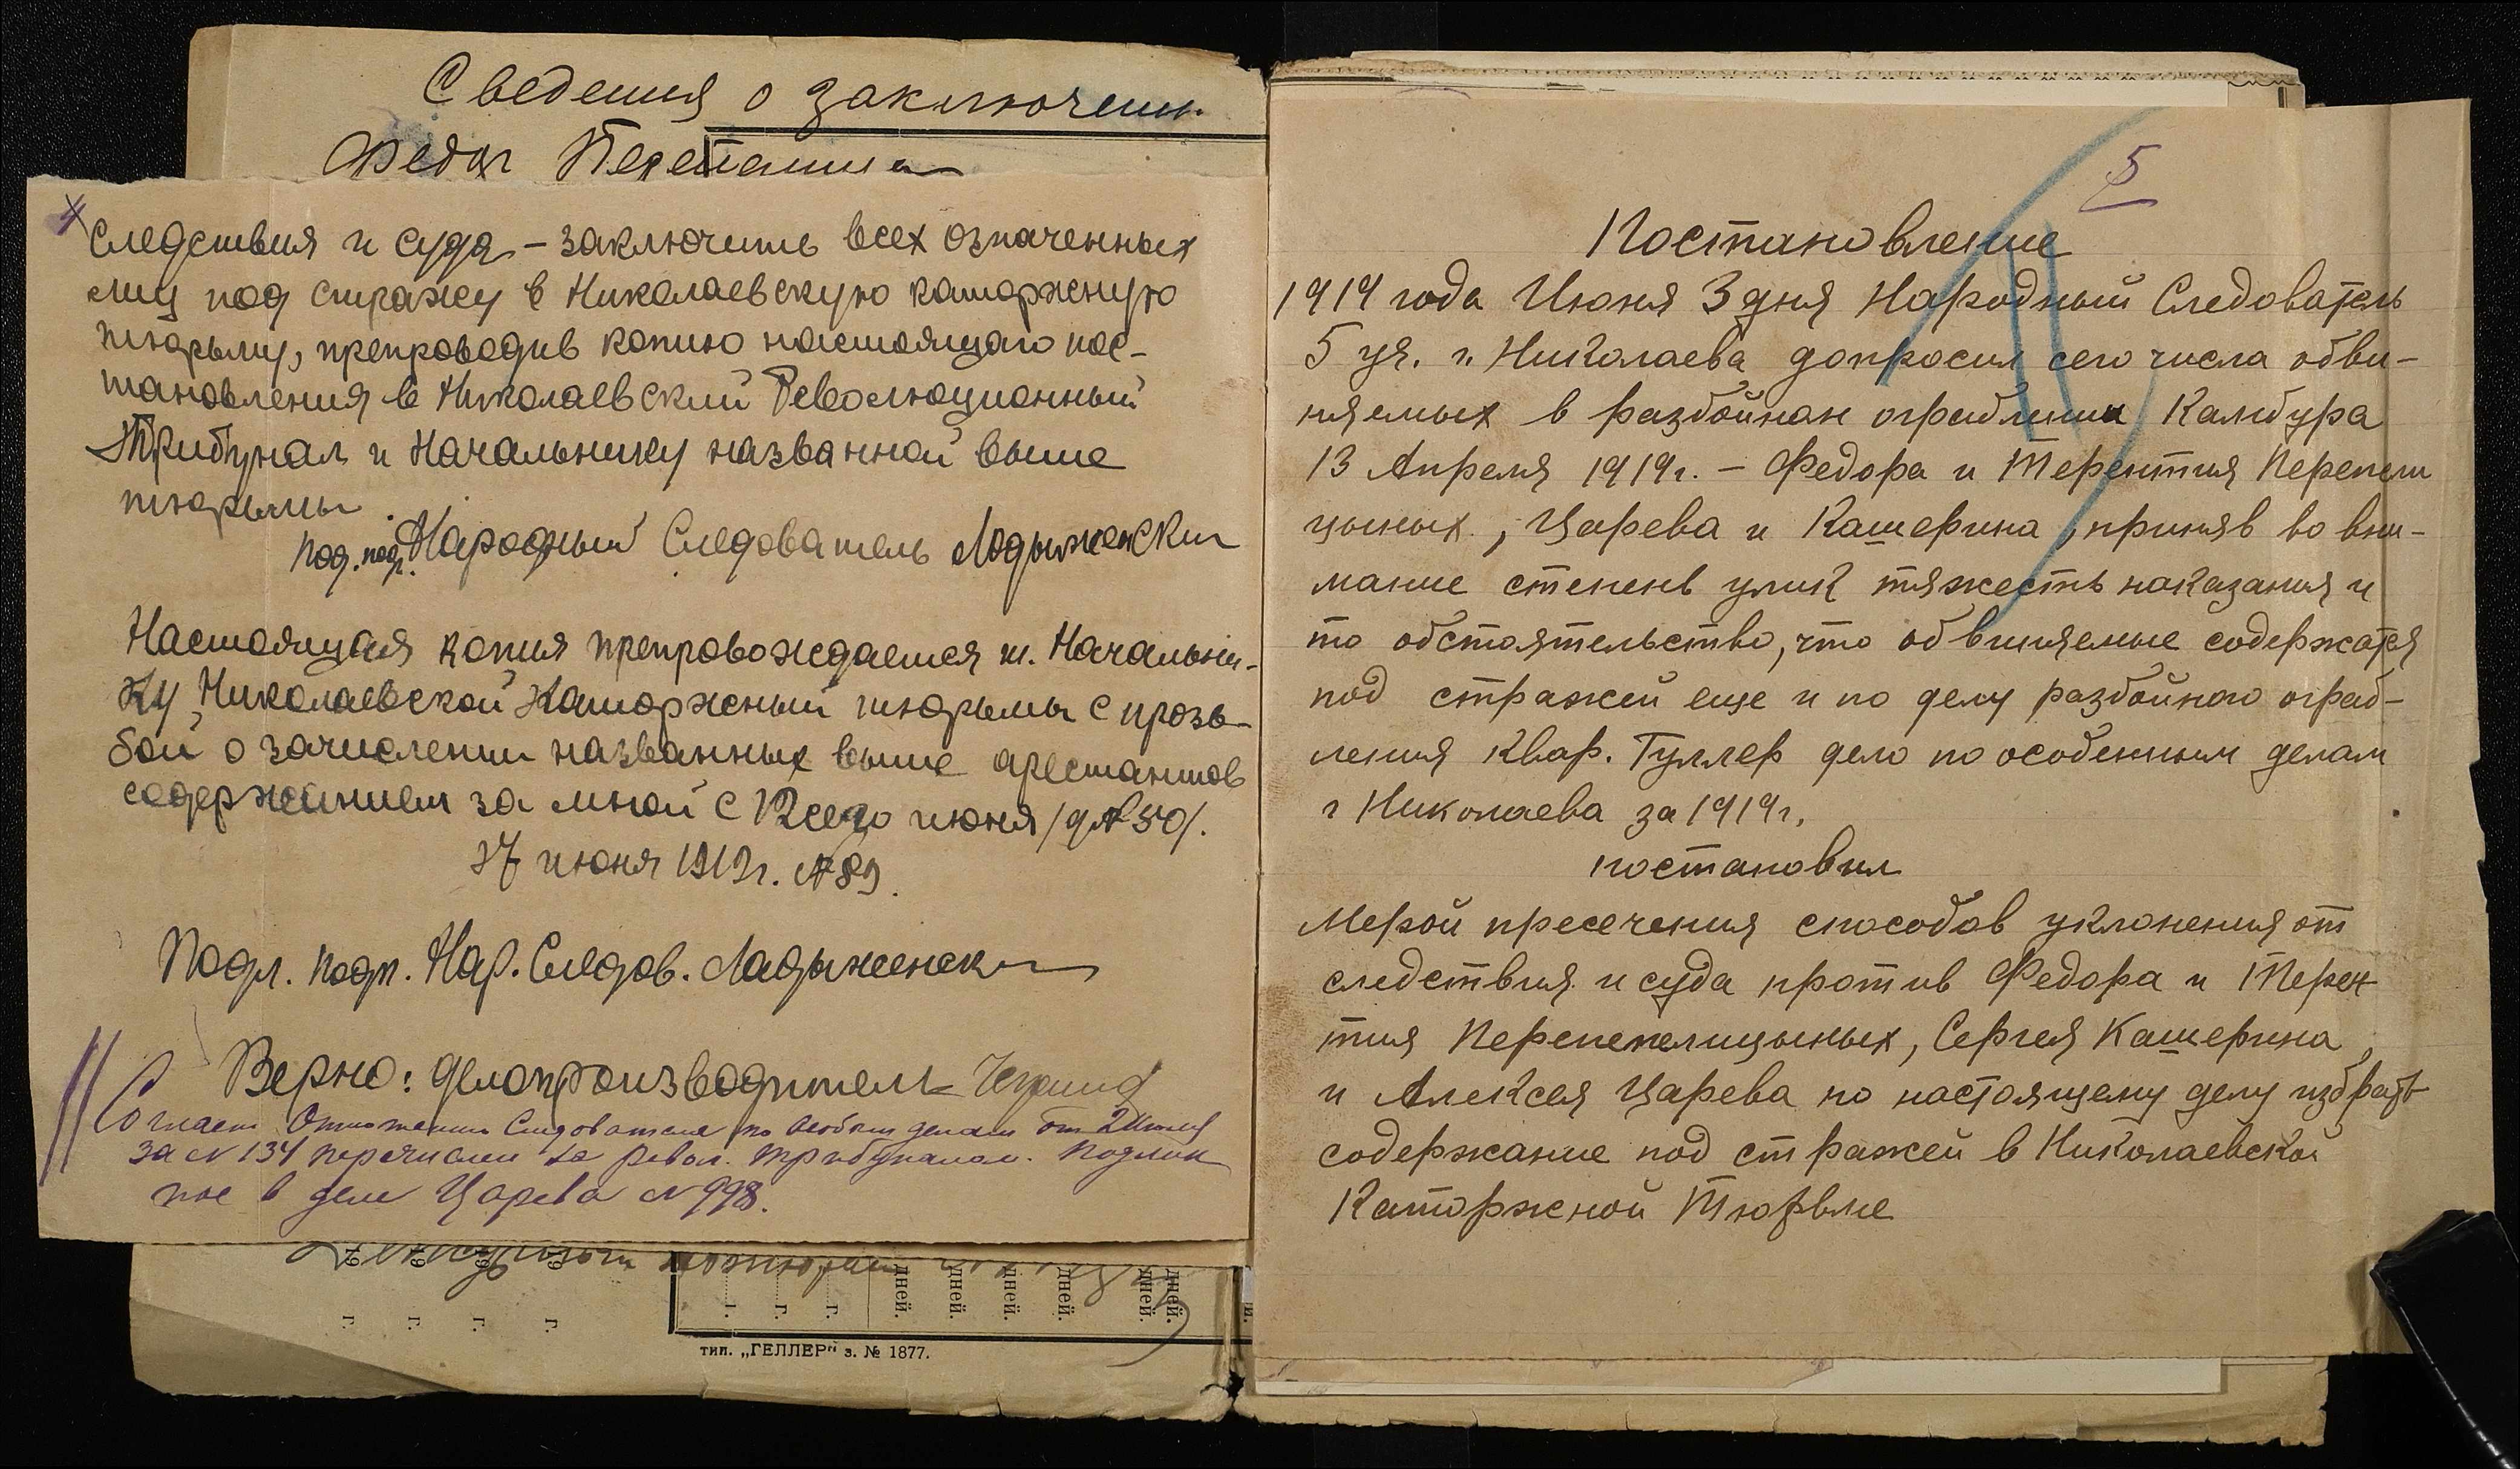 Сведения о заключении
Федор
4
следствия и суда – заключить всех означенных
лиц под стражу в Николаевскую каторжную
тюрьму, препроводив копию настоящаго пос-
тановления в Николаевский Революционный
Трибунал и Начальнику названной выше
тюрьмы.
Под. под. Народный Следователь Лодыженский
Настоящая копия препровождается т. Начальни-
ку Николаевской Каторжный тюрьмы с прозь-
бой о зачислении названных выше арестантов
содержанием за мной с 12 сего июня /д № 50/.
17 июня 1919 г. № 89.
Подл. подп. Нар. Следов. Ладыженск
Верно: делопроизводитель
Согласн Отношения Следователя по особым делам от 2 Июля
за № 134 перечислен за Револ. Трибуналом. Подлин
ное в деле Царева № 998.
19 19 19 19
г. г. г. г. г. г. г.
дней. дней. дней. дней. дней. дней.
тип. „ГЕЛЛЕР“ з. № 1877.
5
Постановление
1919 года Июня 3 дня Народный Следователь
5 уч. г. Николаева допросил сего числа обви-
няемых в разбойнан ограблении Камбура
13 Апреля 1919 г. – Федора и Терентия Перепели
цыных, Царева и Кашерина, приняв во вни-
мание степень улик тяжесть наказания и
то обстоятельство, что обвиняемые содержатся
под стражей еще и по делу разбойного ограб-
ления квар. Гуллер дело по особенным делам
г Николаева за 1919 г,
постановил
Мерой пресечения способов уклонения от
следствия и суда против Федора и Терен
тия Перепепелицыных, Сергея Кашерина,
и Алексея Царева по настоящему делу избрать
содержание под стражей в Николаевской
Каторжной Тюрьме